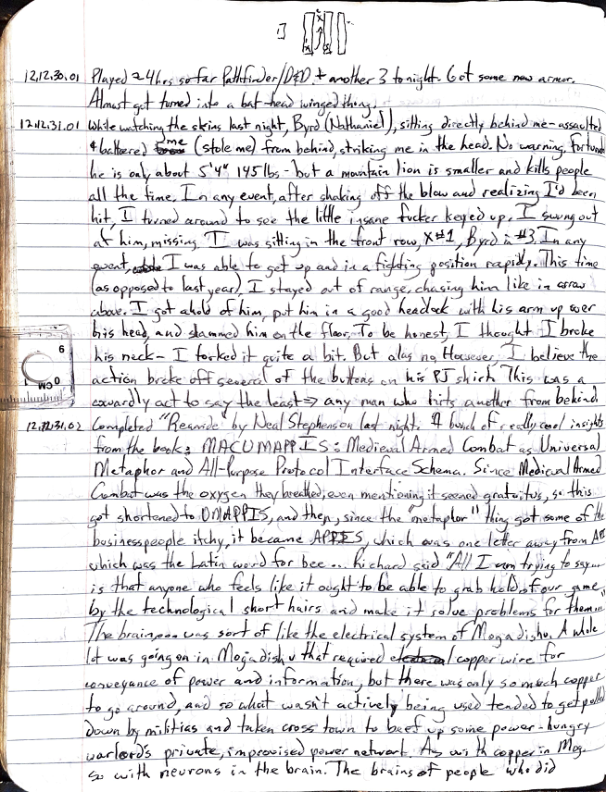 12.12.30.01 Played ~4hrs so far Pathfinder/D&D + another 3 tonight. Got some new armor.
Almost got turned into a bat-head winged thing.
12.12.31.01 While watching the skins last night, Byrd (Nathaniel), sitting directly behind me - assaulted
& battered me (stole me) from behind, striking me in the head. No warning,
he is only about 5'4" 145 lbs - but a mountain lion is smaller and kills people
all the time. In any event, after shaking off the blow and realizing I'd been
hit, I turned around to see the little insane fucker keyed up. I swung out
at him, missing. I was sitting in the front row, X#1, Byrd in #3. In any
event, I was able to get up and in a fighting position rapidly. This time
(as opposed to last year) I stayed out of range, chasing him like in arrow
above. I got ahold of him, put him in a good headlock with his arm up over
his head, and slammed him on the floor. To be honest, I thought I broke
his neck - I torked it quite a bit. But alas no. However, I believe the
action broke off several of the buttons on his PJ shirt. This was a
cowardly act to say the least => any man who hits another from behind.
12.12.31.02 Completed "Reamde" by Neal Stephenson last night. A bunch of really cool insights
from the book: MACUMAPPIS: Medieval Armed Combat as Universal
Metaphor and All-Purpose Protocol Interface Schema. Since Medieval Armed
Combat was the oxygen they breathed, even mentioning it seemed gratuitus, so this
got shortened to UMAPPIS, and then, since the "metaphor" thing got some of the
businesspeople itchy, it became APPIS, which was one letter away from
which was the Latin word for bee ... Richard said "All I am trying to say...
is that anyone who feels like it ought to be able to grab hold of our game
by the technological short hairs and make it solve problems for them
The brain was sort of like the electrical system of Mogadishu. A whole
lt was going on in Mogadishu that required copper wire for
conveyance of power and information, but there was only so much copper
to go around, and so what wasn't actively being used tended to get pulled
down by militias and taken cross town to beef up some power-hungry
warlord's private, improvised power network. As with copper in Mog-
so with neurons in the brain. The brains of people who did
6
0
CM